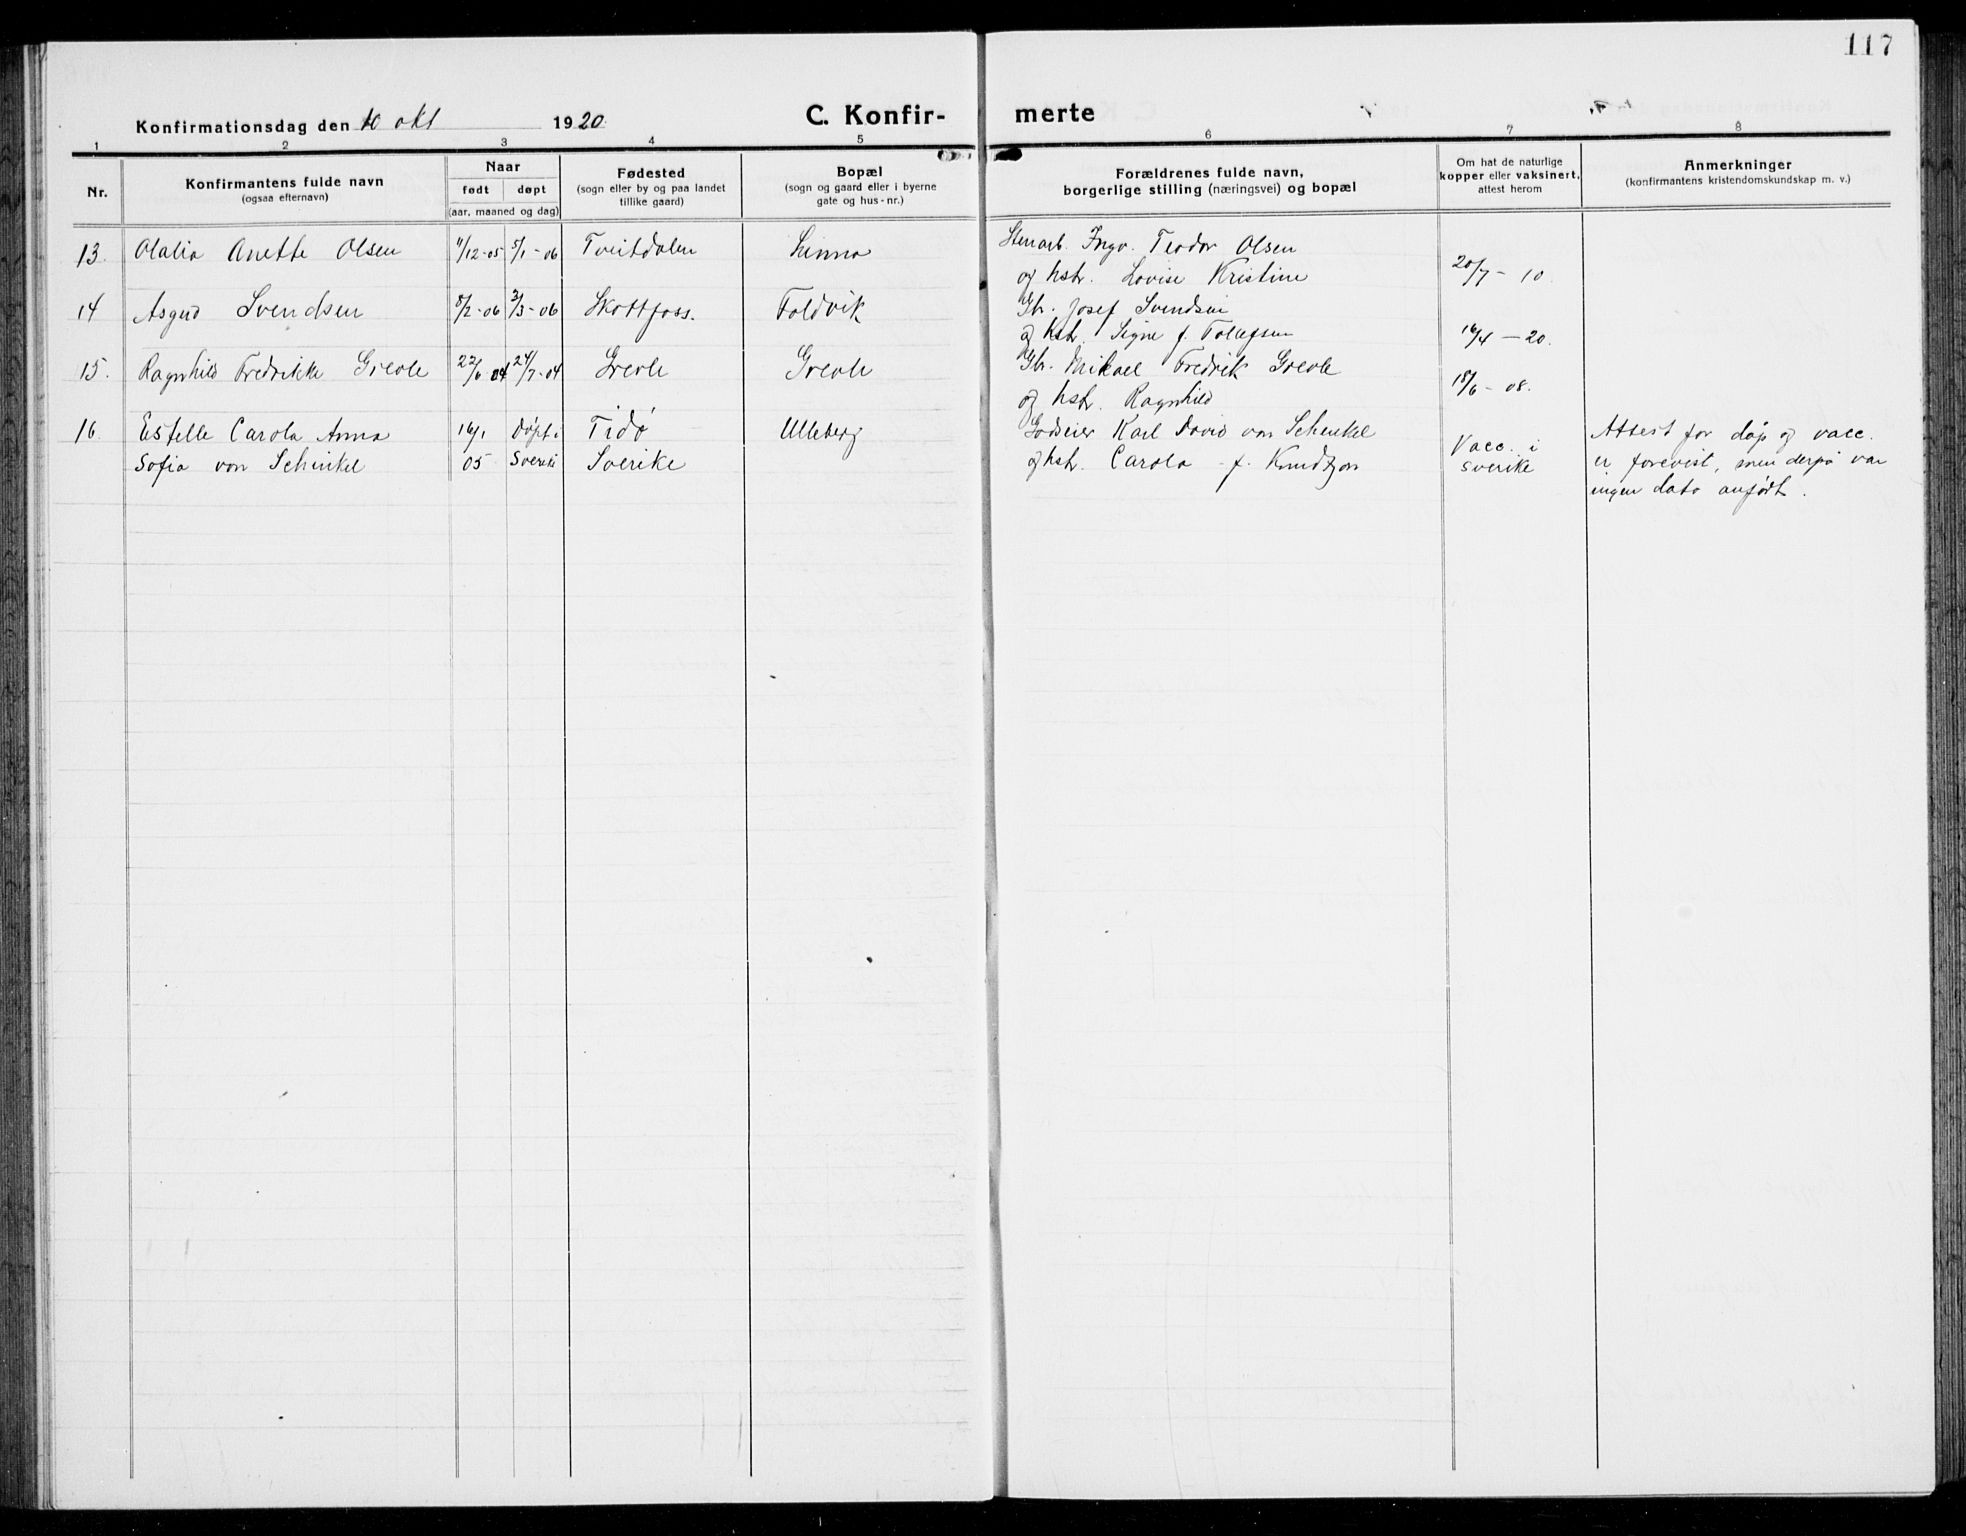 117
Konfirmationsdag den 10 okt 1920. C. Konfirmerte
1 2 3 4 5 6 7 8
Nr. Konfirmantens fulde navn (ogsaa efternavn)
Naar født døpt (aar, maaned og dag)
Fødested (sogn eller by og paa landet tillike gaard)
Bopæl (sogn og gaard eller i byerne gate og hus-nr.)
Forældrenes fulde navn, borgerlige stilling (næringsvei) og bopæl
Om hat de naturlige kopper eller vaksinert, attest herom
Anmerkninger (konfirmantens kristendomskundskap m. v.)
13. Olalia Anette Olsen 11/12-05 5/1-06 Tveitdalen Stenarb. Ingv. Teodor Olsen
og hstr. Lovise Kristine 20/7-10
14 Svendsen 8/2-06 3/3-06 Skottfoss. Foldvik Gbr. Josef Svendsen
og hstr. Signe f. Tollefsen 16/4-20.
15. Ragnhild Fredrikke Grevle 22/6 04 24/7-04 Grevle Grevle Gbr. Mikael Fredrik Grevle
og hstr. Ragnhild 18/6-08.
16. Estelle Carola Anna 16/1 Døpt i Tidø Ulleberg Godseier Karl David von Schinkel Attest for dåp og vacc.
Sofia von Schinkel 05 Sverike Sverike og hstr. Carola f. Knudtzon Vacc. i Sverike er forevist, men derpå var
ingen dato anført.